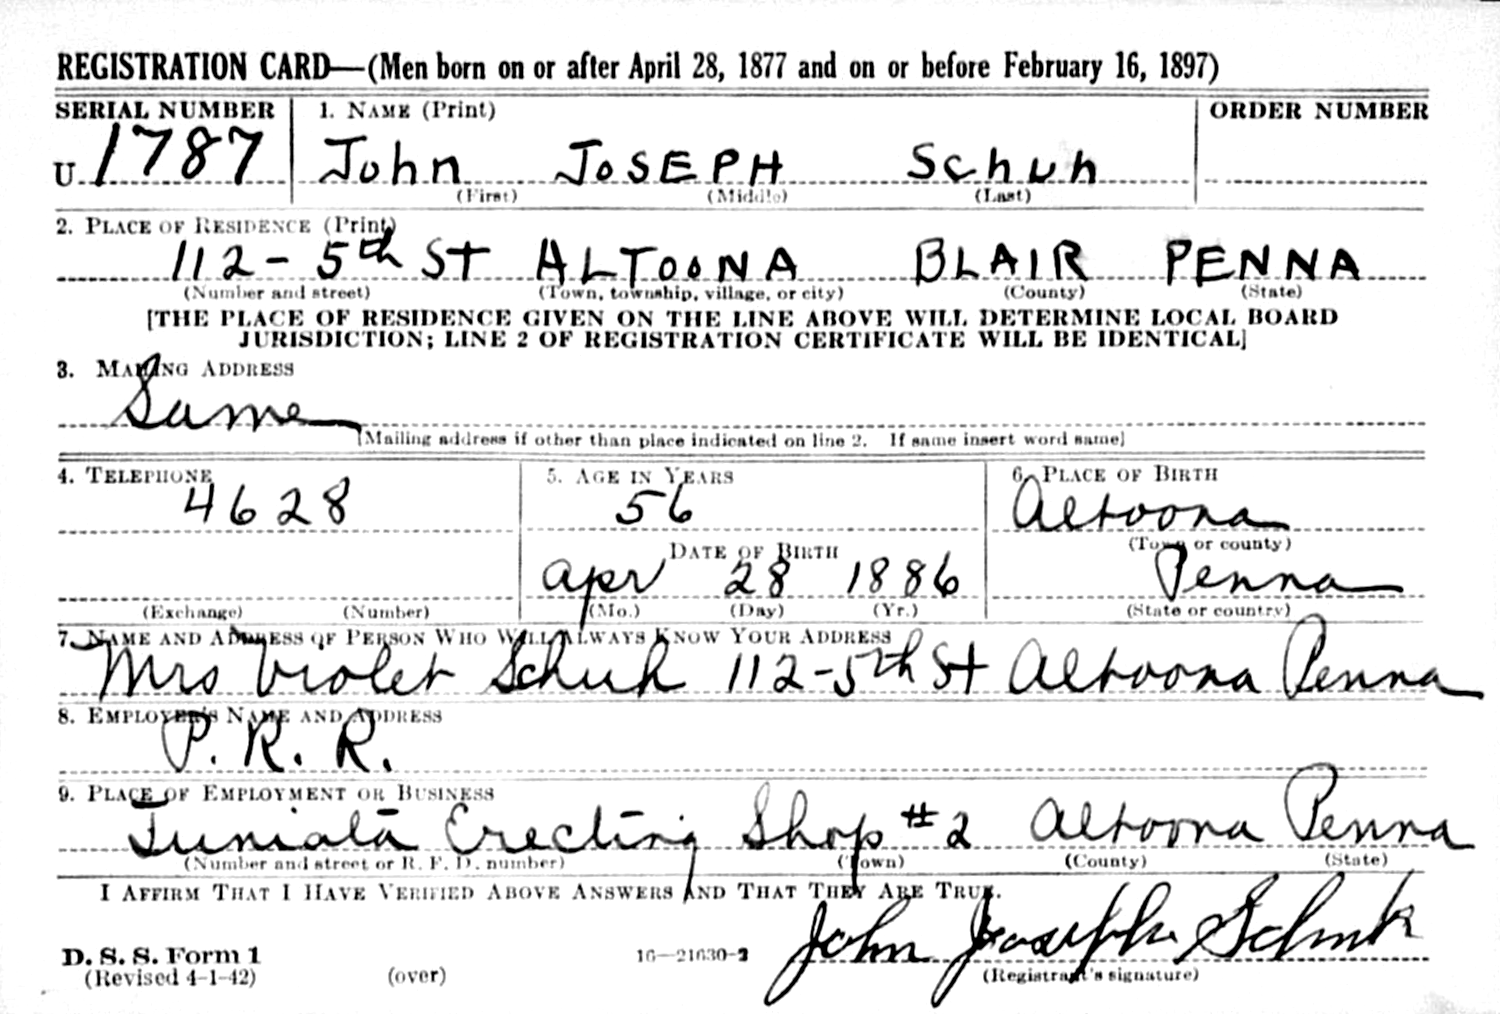 REGISTRATION CARD—(Men born on or after April 28, 1877 and on or before February 16, 1897)
SERIAL NUMBER 1. NAME (Print) ORDER NUMBER
U 1787 John JOSEPH Schuh
(First) (Middle) (Last)
2. PLACE OF RESIDENCE (Print)
112 - 5th St ALTOONA BLAIR PENNA
(Number and street) (Town, township, village, or city) (County) (State)
[THE PLACE OF RESIDENCE GIVEN ON THE LINE ABOVE WILL DETERMINE LOCAL BOARD
JURISDICTION; LINE 2 OF REGISTRATION CERTIFICATE WILL BE IDENTICAL]
3. MAILING ADDRESS
Same
[Mailing address if other than place indicated on line 2. If same insert word same]
4. TELEPHONE 5. AGE IN YEARS 6. PLACE OF BIRTH
4628 56 Altoona
DATE OF BIRTH (Town or county)
Apr 28 1886 Penna
(Exchange) (Number) (Mo.) (Day) (Yr.) (State or country)
7. NAME AND ADDRESS OF PERSON WHO WILL ALWAYS KNOW YOUR ADDRESS
Mrs Violet Schuh 112-5th St Altoona Penna
8. EMPLOYER'S NAME AND ADDRESS
P. R. R.
9. PLACE OF EMPLOYMENT OR BUSINESS
Juniata Erecting Shop #2 Altoona Penna
(Number and street or R. F. D. number) (Town) (County) (State)
I AFFIRM THAT I HAVE VERIFIED ABOVE ANSWERS AND THAT THEY ARE TRUE.
John Joseph Schuh
D. S. S. Form 1 16—21630-2
(Revised 4-1-42) (over) (Registrant's signature)